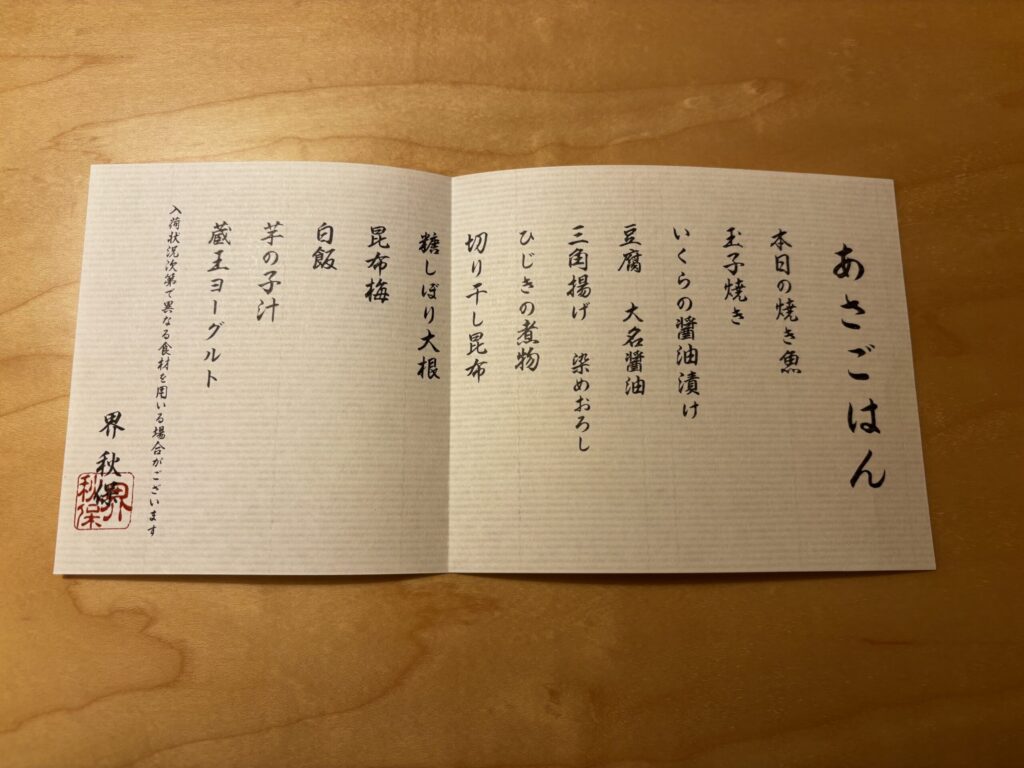 あさごはん
本日の焼き魚
玉子焼き
いくらの醤油漬け
豆腐　大名醤油
三角揚げ　染めおろし
ひじきの煮物
切り干し昆布
糖しぼり大根
昆布梅
白飯
芋の子汁
蔵王ヨーグルト
入荷状況次第で異なる食材を用いる場合がございます
界 秋保
界秋保